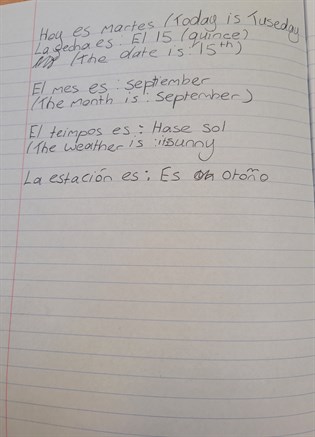 Hoy es martes (Today is Tuseday
La fecha es: El 15 (quince)
(The date is 15th)
El mes es: september
(The month is: September)
El teimpos es: Hase sol
(The weather is: sunny
La estación es: Es otoño